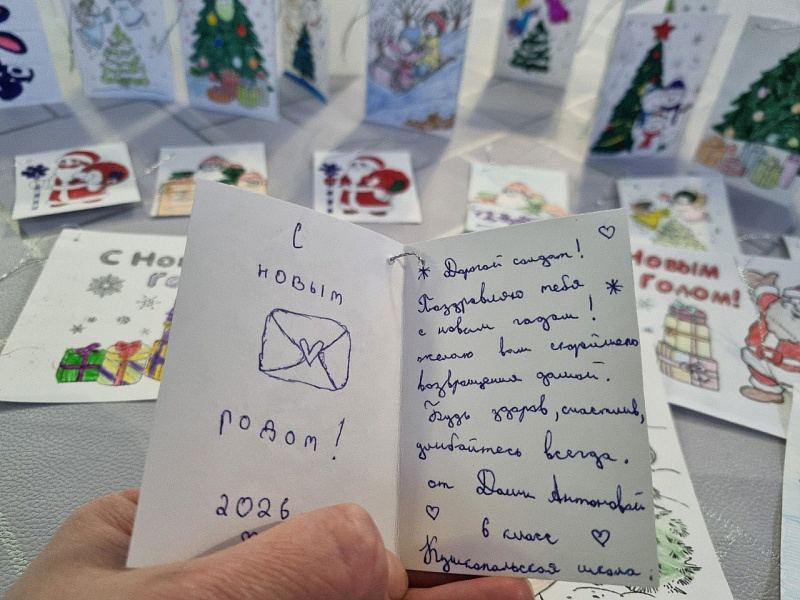 С
новым
годом!
2026
Дорогой солдат!
Поздравляю тебя
с новым годом!
желаю вам скорейшего
возвращения домой.
Будь здоров, счастлив,
улыбайтесь всегда.
от Антоновой
6 класс
школа.
С Но
НОВЫМ
ГОДОМ!